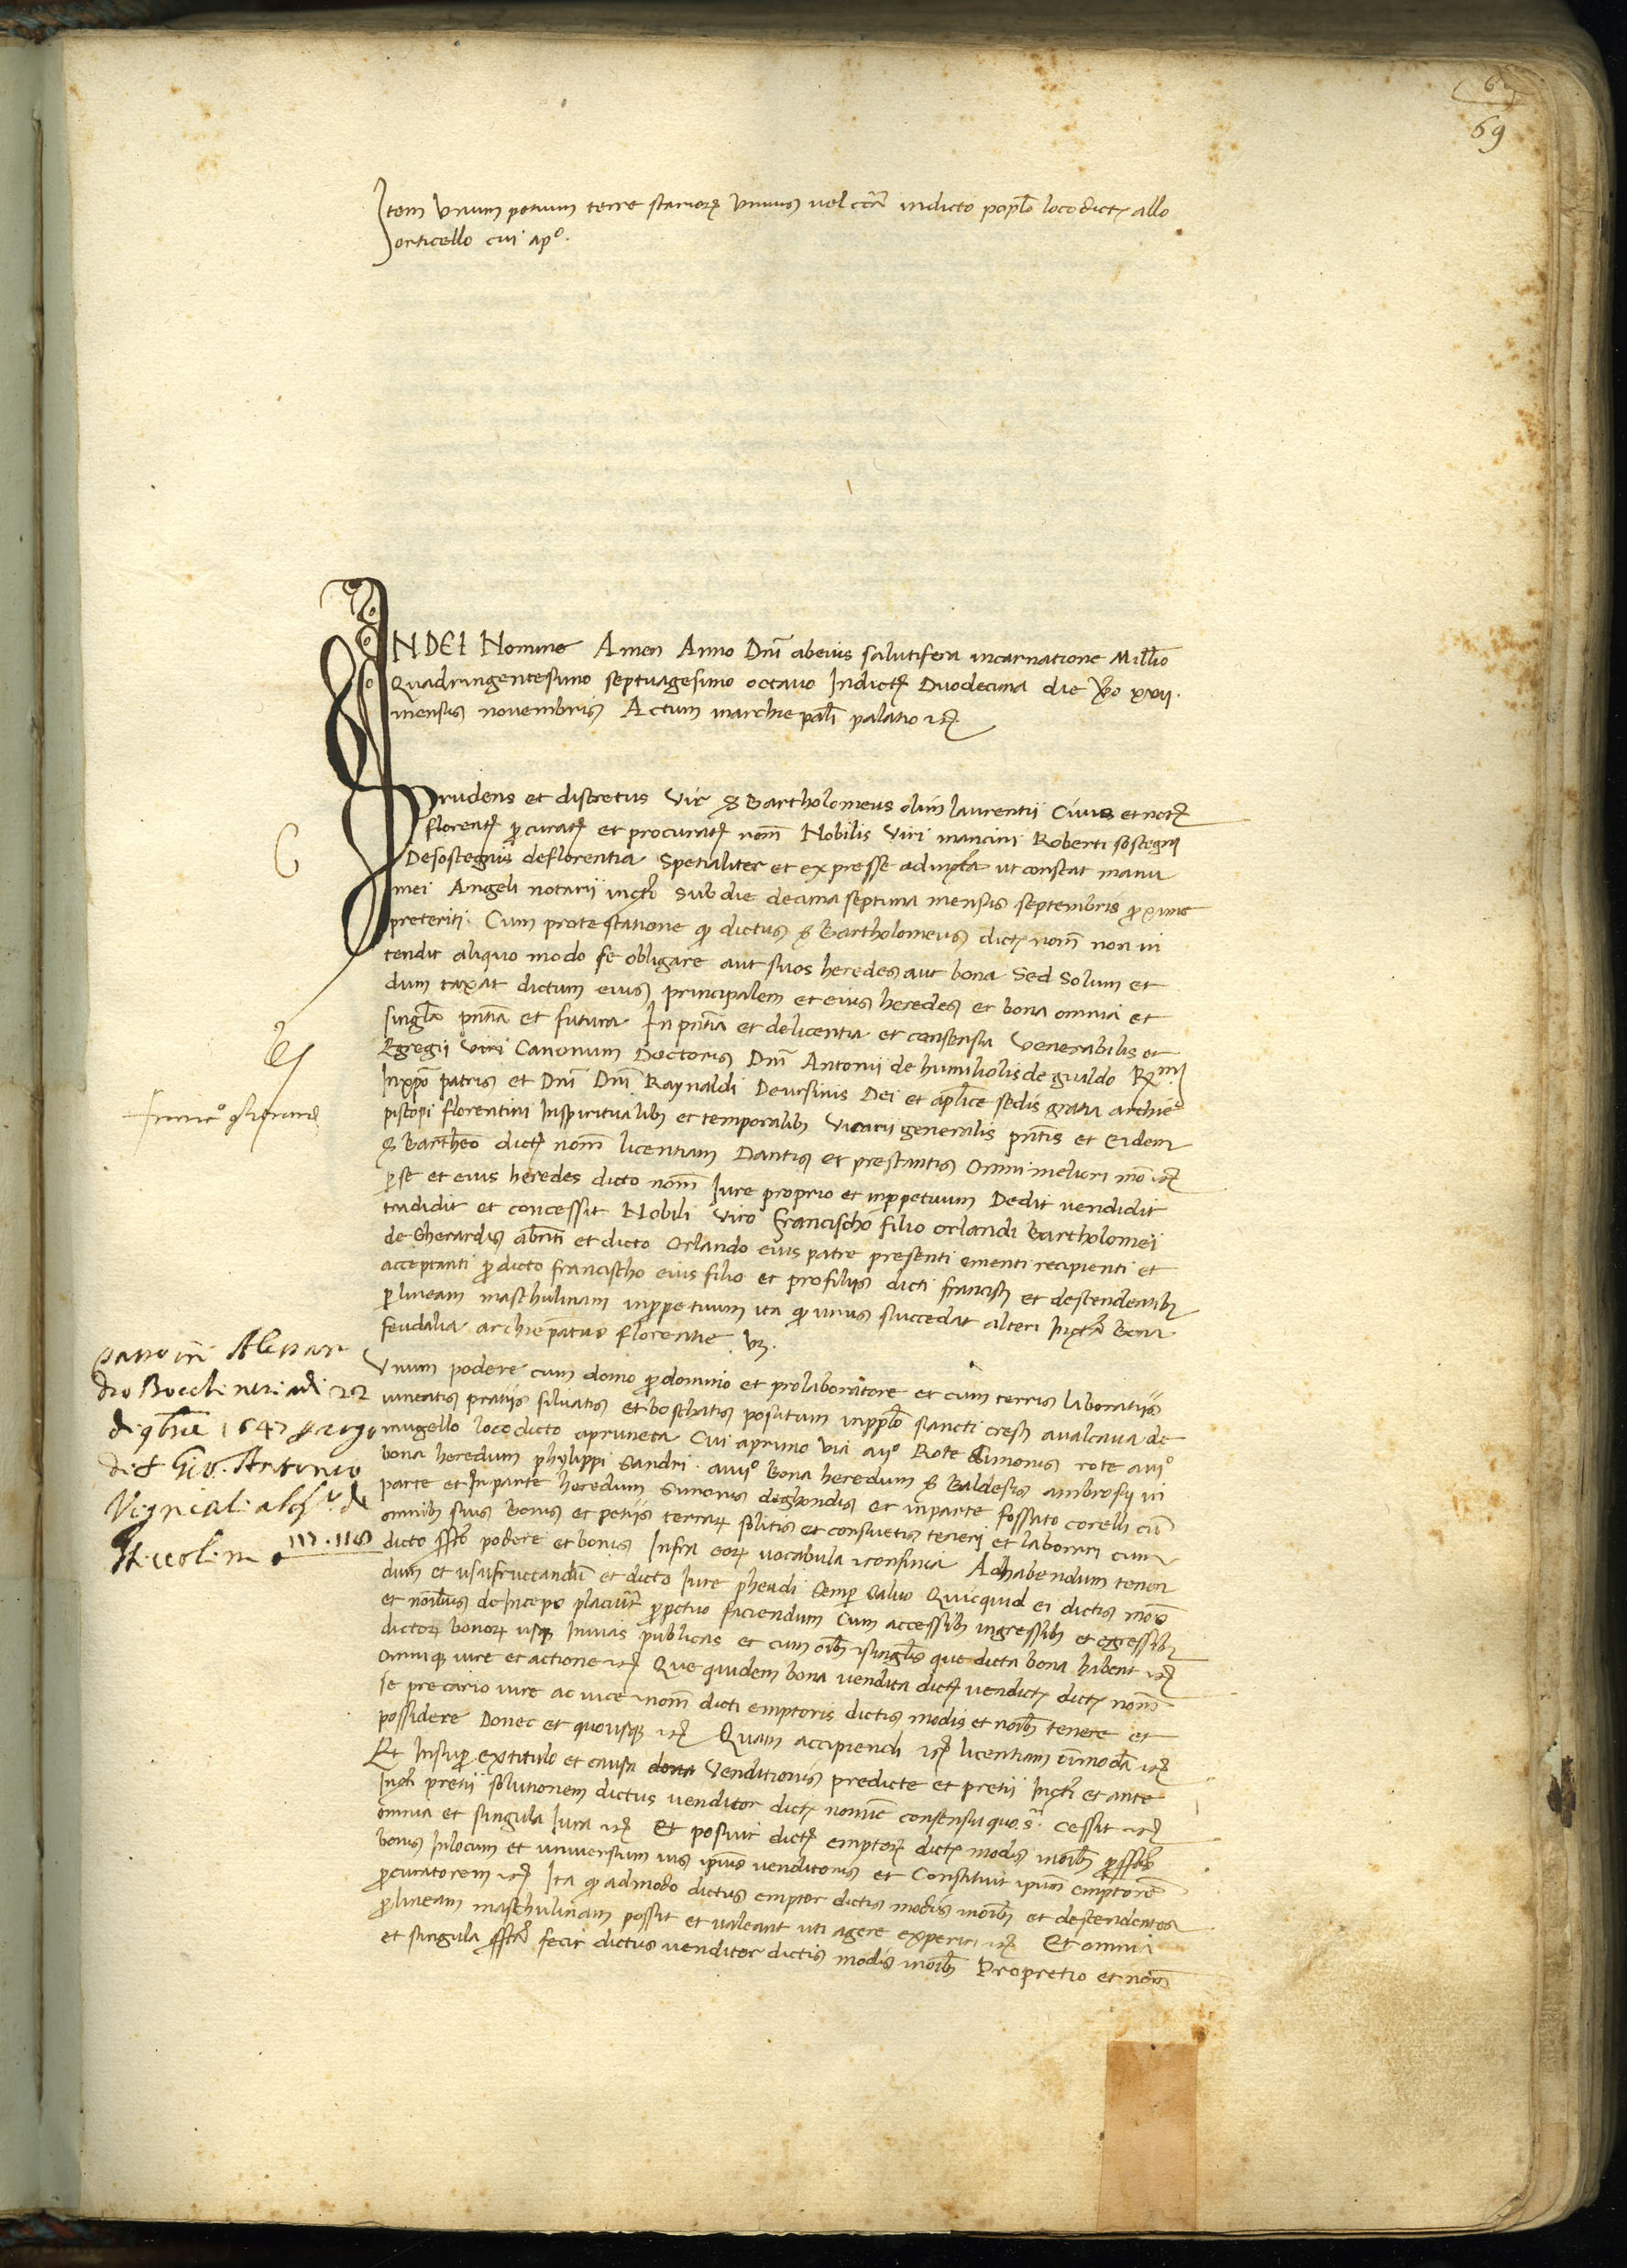 69
Item Unum petium terre starioꝝ unius vel circa in dicto poplo loco dicto allo
orticello cui a po.
IN DEI Nomine Amen Anno Dni ab eius salutifera incarnatione Millo
Quadringentesimo septuagesimo octavo Indicte Duodecima die vero xxvii.
mensis novembris Actum in archiepali palatio etc
Prudens et discretus Vir S Bartholomeus olim laurentii Civis et note
florente p curate et procurate nom Nobilis Viri mancini Roberti sostegni
De sostegnis de florentia Spetialiter et expresse ad infrta ut constat manu
mei Angeli notarii infrti sub die decima septima mensis septembris proxime
preteriti. Cum protestatione q dictus S Bartholomeus dicte nom non in
tendit aliquo modo se obligare aut suos heredes aut bona Sed Solum et
dum taxat dictum eius principalem et eius heredes et bona omnia et
singla pntia et futura In pntia et de licentia et consensu Venerabilis et
Egregii viri Canonum Doctoris Dni Antonii de humiliolis de gualdo Rmi
In xpo patris et Dni Dni Raynaldi De ursinis Dei et aplice sedis gratia archie
piscopi florentini In spiritualibus et temporalibus Vicarii generalis pntis et eidem
S Bartheo dicte nom licentiam Dantis et prestantis Omni meliori mo etc
p se et eius heredes dicto nom Iure proprio et in ppetuum Dedit vendidit
tradidit et concessit Nobili Viro Francischo filio orlandi Bartholomei
de Gherardis abnti et dicto Orlando eius patre presenti ementi recipienti et
acceptanti p dicto francischo eius filio et pro filiis dicti francisci et descendentibus
p lineam maschulinam in ppetuum ita q unus succedat alteri Infrta Bona
feudalia archiepatus florentie vz.
Unum podere cum domo p domino et pro laboratore et cum terris laboratiis
vineatis pratiis silvatis et boschatis positum in pplo sancti cresci a valcava de
mugello loco dicto a pruneta Cui a primo via a ijo Rote Simonis rote a iijo
bona heredum phylippi Sandri . a iiijo Bona heredum S Baldesis ambrosii in
parte et In parte heredum Simonis et in parte fossato corelli cu
omnibus suis bonis et petiis terraꝝ solitis et consuetis teneri et laborari cum
dicto podere et bonis Infra eoꝝ vocabula et confinia Ad habendum tenen
dum et usufructandu et dicto Iure pheudi semp salvo Quicquid ei dictis mo is
et noibus deinceps placuit ppetuo faciendum Cum accessibus ingressibus et egressibus
dictoꝝ bonoꝝ usq In vias publicas et cum oibus et singlis que dicta bona habent etc
omniq iure et actione etc Que quidem bona vendita dicte vendictz dicte nom
se precario iure ac vice et nom dicti emptoris dictis modis et noibus tenere et
possidere Donec et quousq etc Quam accipiendi etc licentiam oimoda etc
Et Insup ex titulo et causa Venditionis predicte et pretii Infrti et ante
Infrti pretii solutionem dictus venditor dicte nomie consensu quo s. Cessit etc
omnia et singula Iura etc Et posuit dicte emptore dicte modis noibus
bonis In locum et universum ius ipius venditoris et Constituit ipum emptore
pcuratorem etc Ita q admodo dictus emptor dictis modis noibus et descendentes
p lineam maschulinam possit et valeant uti agere experiri etc Et omnia
et singula fecit dictus venditor dictis modis noibus Pro pretio et nom
di 9bre 1647
det Gio. Antonio
117.118